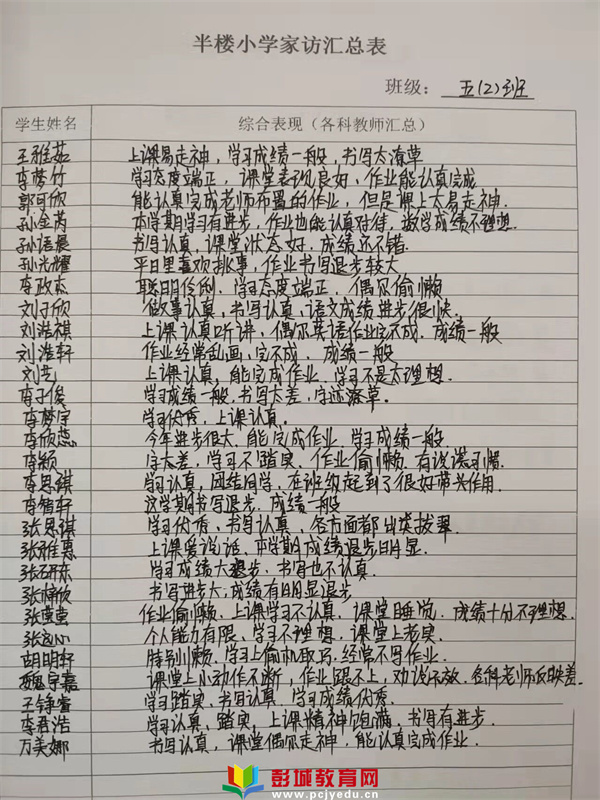 半楼小学家访汇总表
班级： 五(2)班
学生姓名 综合表现（各科教师汇总）
王雅茹 上课易走神，学习成绩一般，书写太潦草
李梦竹 学习态度端正，课堂表现良好，作业能认真完成
郭可欣 能认真完成老师布置的作业，但是课上太易走神.
孙金芮 本学期学习有进步，作业也能认真对待，数学成绩不理想.
孙语晨 书写认真，课堂状态好，成绩还不错.
孙光耀 平日里喜欢挑事，作业书写退步较大
李政杰 聪明伶俐，学习态度端正，偶尔偷懒
刘子欣 做事认真，书写认真，语文成绩进步很快.
刘浩祺 上课认真听讲，偶尔英语作业完不成，成绩一般
刘浩轩 作业经常乱画，完不成，成绩一般
刘艺 上课认真，能完成作业，学习不是太理想.
李子俊 学习成绩一般，书写太差，字迹潦草.
李梦宇 学习优秀，上课认真.
李欣蕊 今年进步很大，能完成作业，学习成绩一般.
李颖 字太差，学习不踏实，作业偷懒，有说谎习惯.
李思锦 学习认真，团结同学，在班级起到了很好带头作用.
李智轩 这学期书写退步，成绩一般
张思琪 学习优秀，书写认真，各方面都出类拔翠.
张雅惠 上课爱说话，本学期成绩退步明显.
张研东 学习成绩大退步，书写也不认真.
张梓欣 书写进步大，成绩有明显退步
张莹莹 作业偷懒，上课学习不认真，课堂睡觉，成绩十分不理想.
张 个人能力有限，学习不理想，课堂上老实.
胡明轩 特别懒，学习上偷机取巧，经常不写作业.
魏宇嘉 课堂上小动作不断，作业跟不上，劝说不改，各科老师反映差.
子铮睿 学习踏实，书写认真，学习成绩优秀.
李君浩 学习认真，踏实，上课精神饱满，书写有进步.
万美娜 书写认真，课堂偶尔走神，能认真完成作业.
彭城教育网
www.pcjyedu.cn